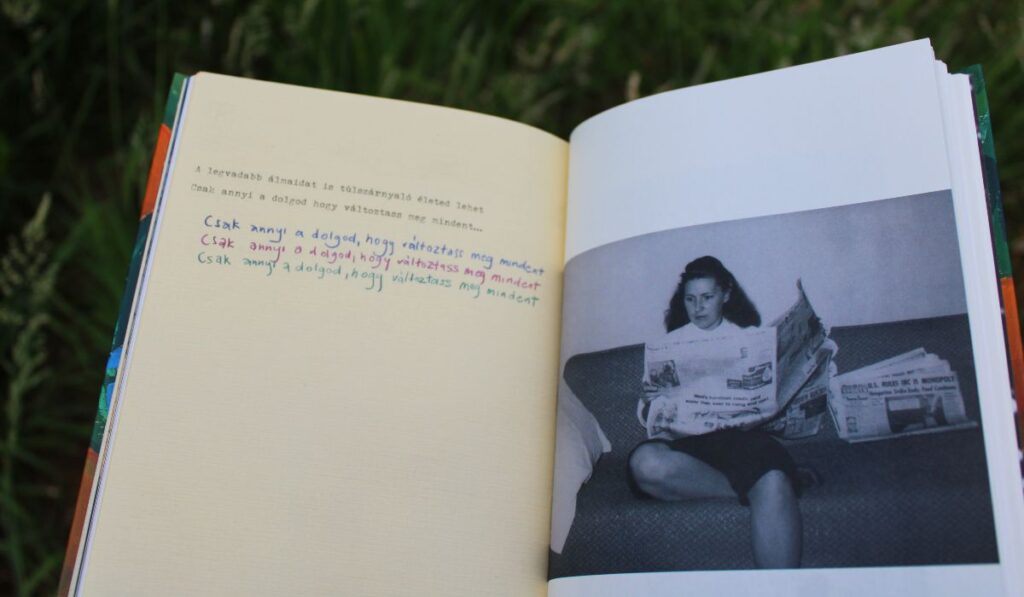 A legvadabb álmaidat is túlszárnyaló életed lehet
Csak annyi a dolgod hogy változtass meg mindent...
Csak annyi a dolgod, hogy változtass meg mindent
Csak annyi a dolgod, hogy változtass meg mindent
Csak annyi a dolgod, hogy változtass meg mindent
U.S. RULES IBC IS MONOPOLY